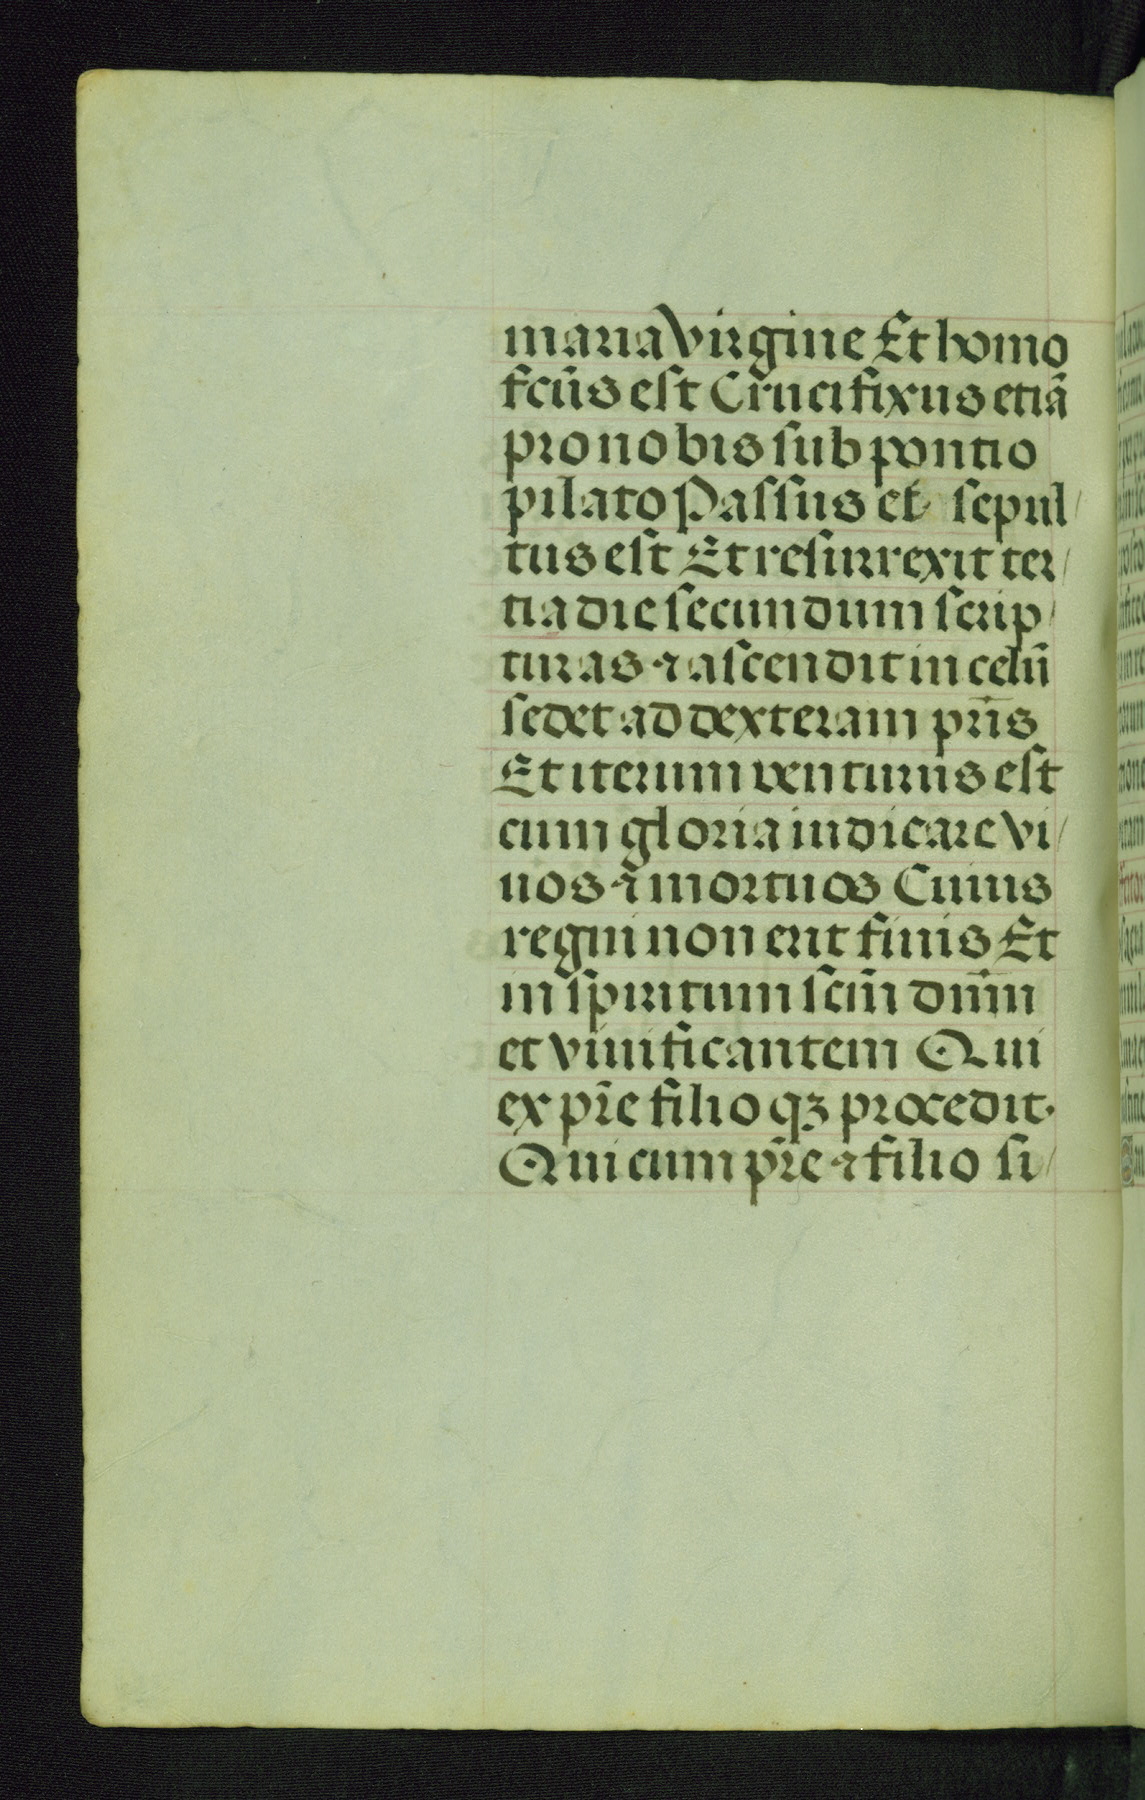 maria Virgine Et homo
fcūs est Crucifixus etiā
pro nobis sub pontio
pilato Passus et sepul/
tus est Et resurrexit ter/
tia die secundum scrip/
turas ⁊ ascendit in celū
sedet ad dexteram pr̄is
Et iterum venturus est
cum gloria iudicare vi/
uos ⁊ mortuos Cuius
regni non erit finis Et
in spiritum scm̄ dnm̄
et viuificantem Qui
ex pr̄e filioqꝫ procedit.
Qui cum pr̄e ⁊ filio si/